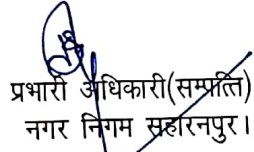 प्रभारी अधिकारी(सम्पत्ति)
नगर निगम सहारनपुर।